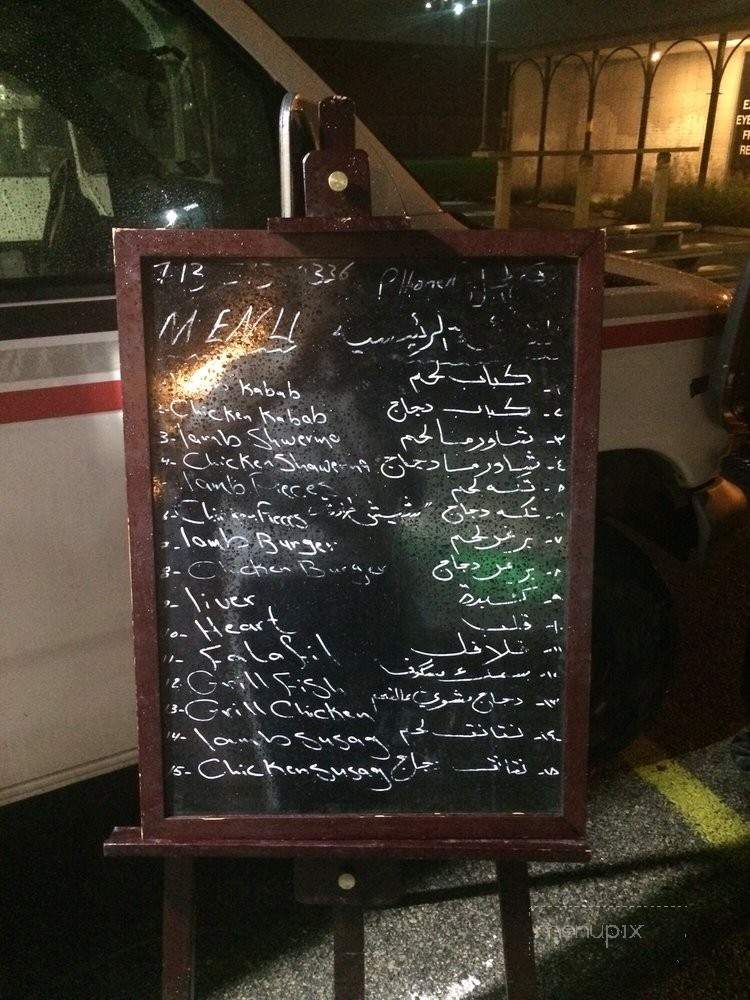 713 336 PHone
MENU الرئيسية
Kabab كباب لحم -١
2- Chicken Kabab كباب دجاج -٢
3- lamb Shwerma شاورما لحم -٣
4- Chicken Shawerma شاورما دجاج -٤
lamb Fieces تكه لحم -٥
6- Chicken Fieces تكه دجاج -٦
7- lamb Burger برغر لحم -٧
8- Chicken Burger برغر دجاج -٨
9- liver كبدة -٩
10- Heart قلب -١٠
11- Falafil فلافل -١١
12- Grill Fish سمك مسگوف
13- Grill Chicken دجاج مشوي عالفحم -١٣
14- lamb Susag نقانق لحم -١٤
15- Chicken Susag نقانق دجاج -١٥
menupix